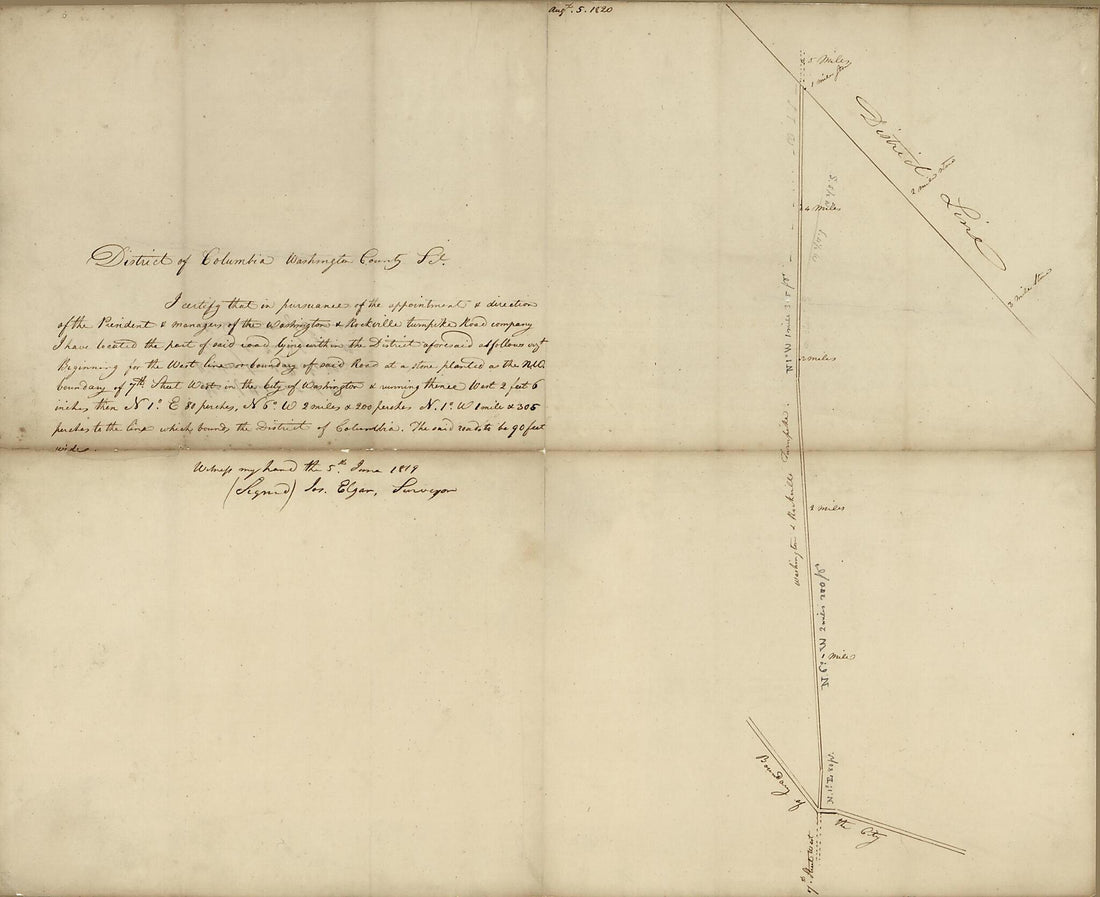 Augt. 5. 1820
District of Columbia Washington County Sct.
I certify that in pursuance of the appointment & direction
of the President & managers of the Washington & Rockville turnpike Road company
I have located the part of said road lying within the District aforesaid as follows vizt
Beginning for the West line or boundary of said Road at a stone planted as the N.W.
boundary of 7th. Street West in the City of Washington & running thence West 2 feet 6
inches then N 1°. E 80 perches, N 6°. W 2 miles & 200 perches N. 1°. W 1 mile & 305
perches to the line which bounds the District of Columbia. The said road to be 90 feet
wide.
Witness my hand th 5th. June 1819
(Signed) Jos. Elgar, Surveyor
5 Miles
1 mile Stone
District Line
2 mile stone
3 mile Stone
4 Miles
N 1° W 1 mile 305 ps.
3 miles
Washington & Rockville Turnpike.
2 miles
W 2 miles 200 ps
Mile
N. 1° E 80 ps.
Boundary of
th City
7th Street West